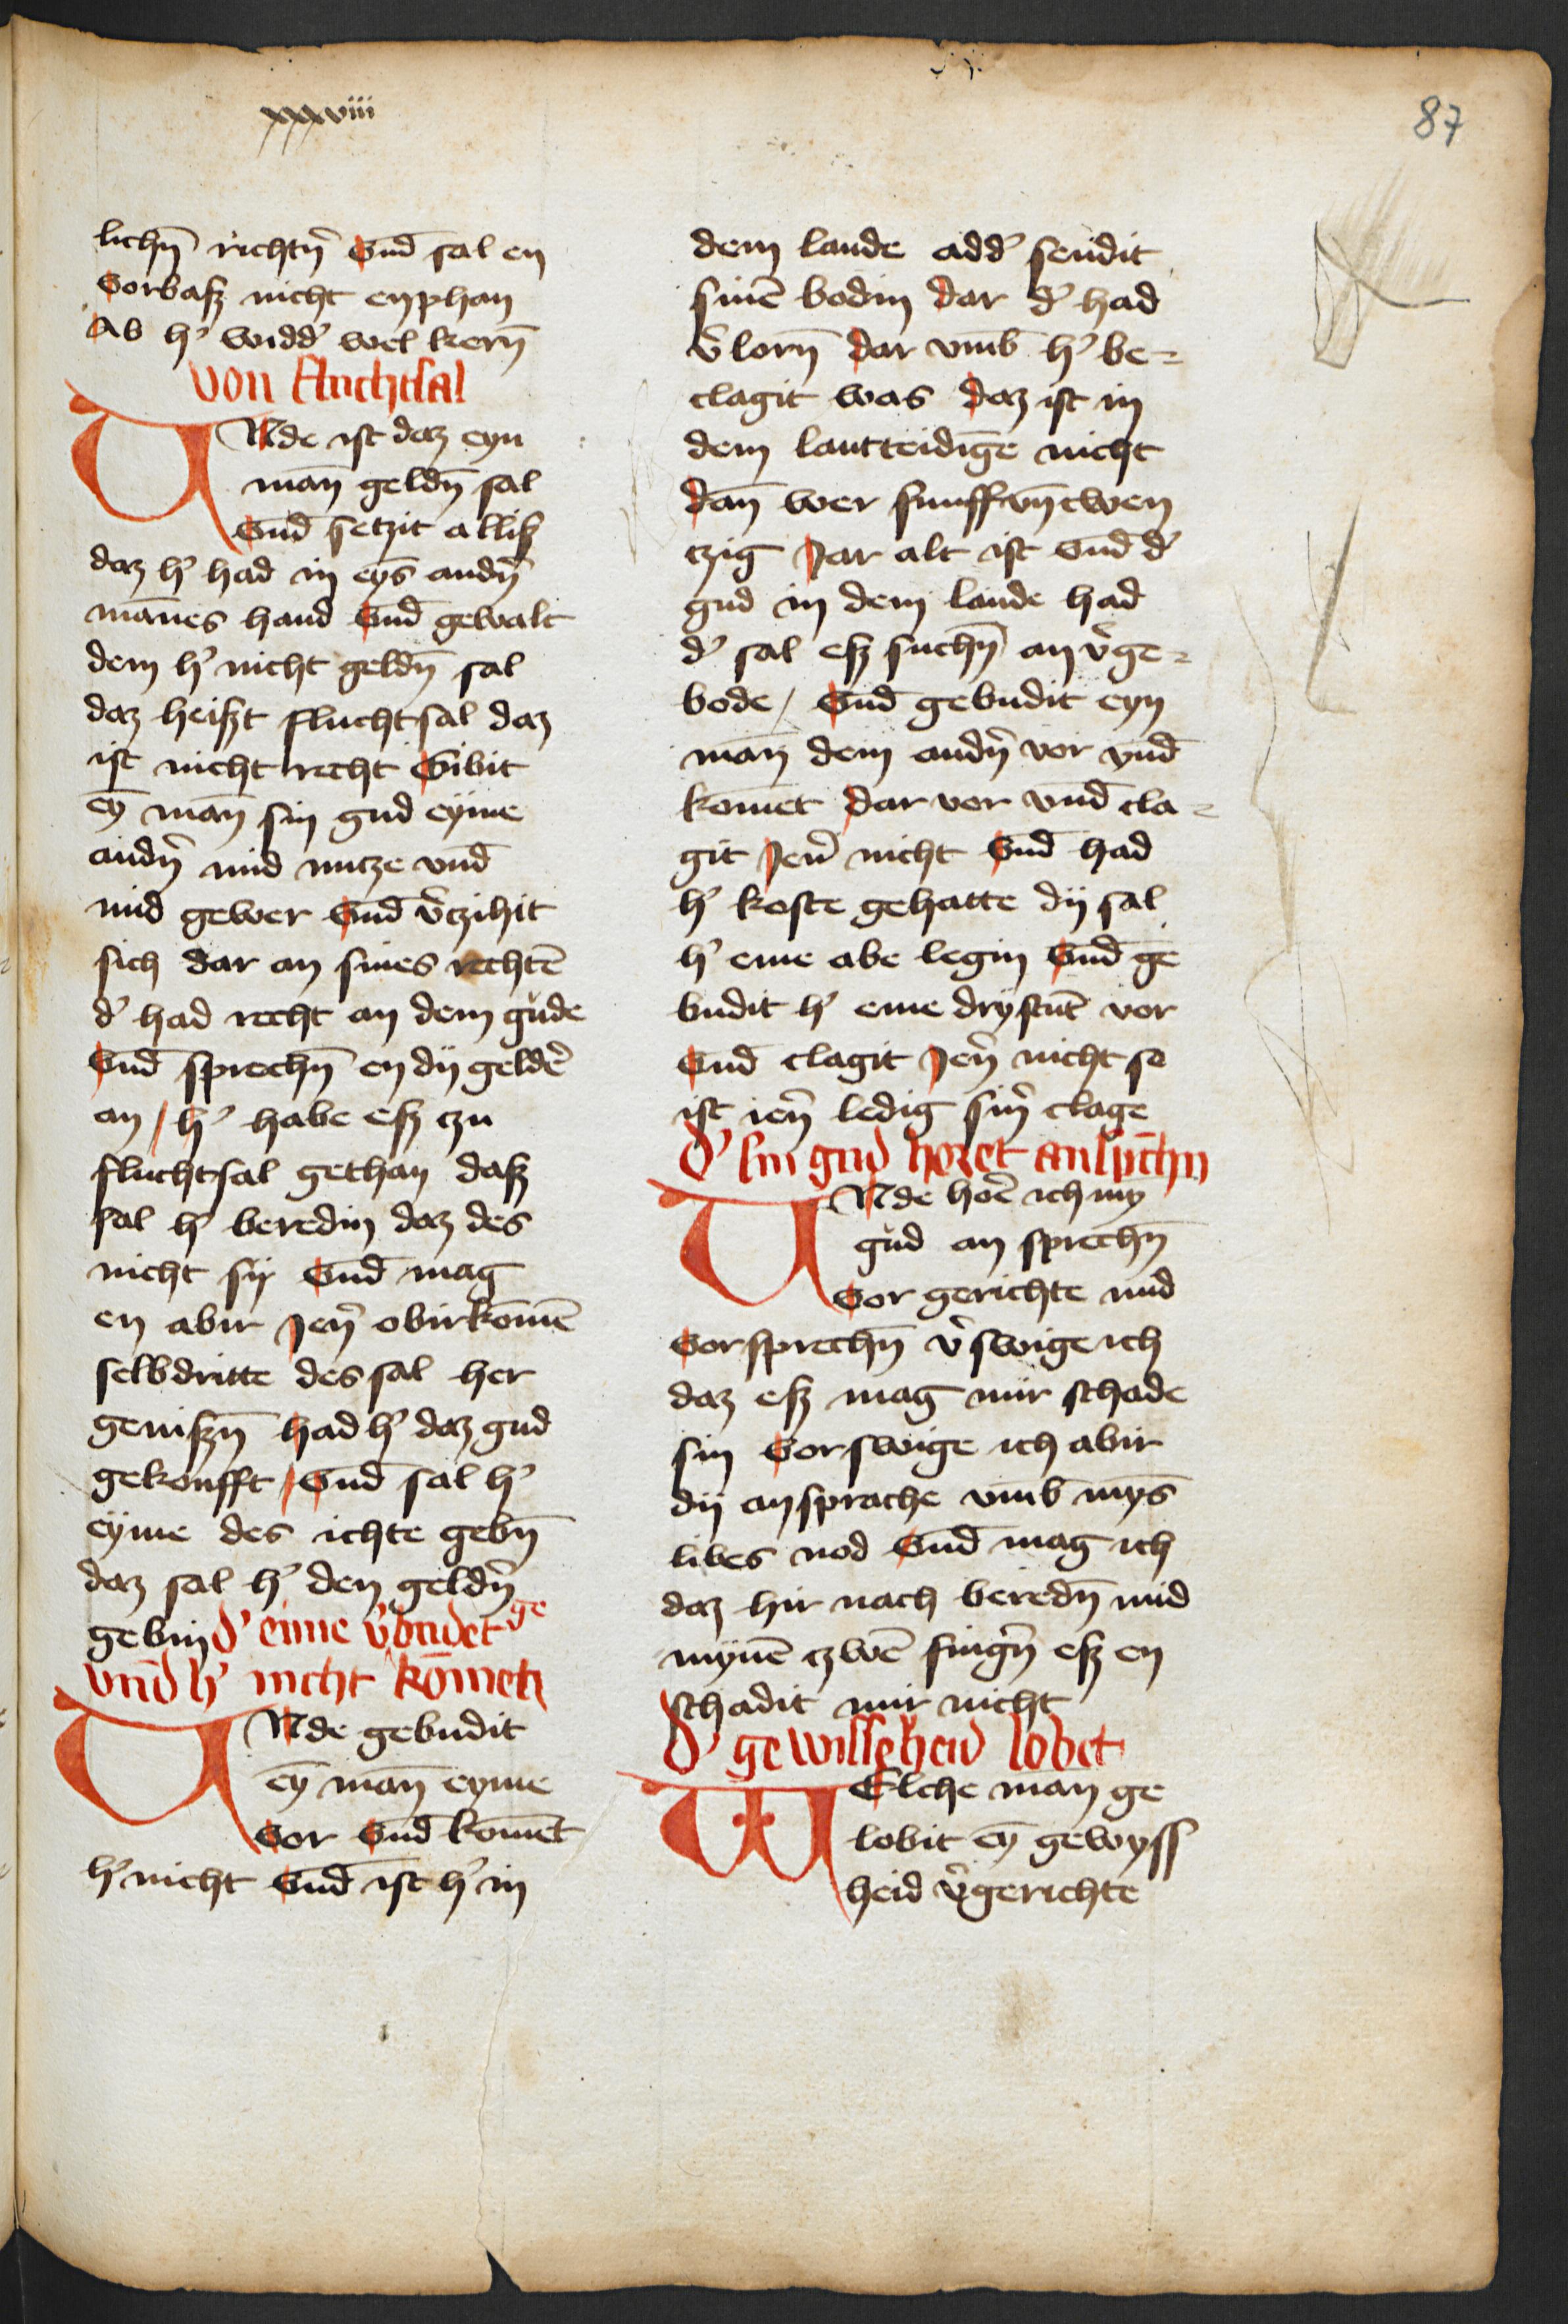 xxxviii
87
lichn̄ richtn᷑ Vnd̄ sal en
Vorbaß nicht enphan
Ab h᷑ widd᷑ wel kern̄
von fluchtsal
VNde ist daz eyn
man̄ geldn̄ sal
Vnd̄ setzit alliß
daz h᷑ had in eys̄ andn᷑
mānes hand Vnd̄ gewalt
dem h᷑ nicht geldn̄ sal
daz heißt fluchtsal daz
ist nicht recht Gibit
eȳ man̄ sin gud eyme
andn᷑ mid nutze vnd̄
mid gewer Vnd̄ v᷑czihit
sich dar an sines rechtē
d᷑ had recht an dem gude
Vnd̄ sprechn̄ en dy geld᷑e
an / h᷑ habe eß czu
fluchtsal gethan daß
sal h᷑ beredin daz des
nicht sy Vnd̄ mag
en abir Jen᷑ obirkōmē
selbdritte des sal her
genißn̄ had h᷑ daz gud
gekoufft / Vnd̄ sal h᷑
eyme des ichte gebn̄
daz sal h᷑ den geldn᷑
gebin d᷑ eime v᷑budet ge
vnd̄ h᷑ nicht kōmet
VNde gebudit
eȳ man̄ eyme
Vor Vnd̄ komēt
h᷑ nicht Vnd̄ ist h᷑ in
dem lande add᷑ sendit
sinē bodin dar d᷑ had
v᷑lorn̄ dar vmb̄ h᷑ be=
clagit was daz ist in
dem lantteidigē nicht
dan̄ wer funffvn̄cwen
czig Jar alt ist Vnd̄ d᷑
gud in dem lande had
d᷑ sal eß suchn̄ an v᷑ge=
bode / Vnd̄ gebudit eyn
man̄ dem andn᷑ vor vnd̄
komet dar vor vnd̄ cla=
git Jen᷑ nicht Vnd̄ had
h᷑ koste gehatte dy sal
h᷑ eme abe legin Vnd̄ ge
budit h᷑ eme drystūt vor
Vnd̄ clagit Jen᷑ nicht se
ist ien᷑ ledig sin᷑ clage
d᷑ sin gud horet anspchn̄
VNde hor᷑e ich my̅
gud an sprechn̄
Vor gerichte mid
Vorsprechn̄ v᷑swige ich
daz eß mag mir schade
sin Vorswige ich abir
dy ansprache vmb̄ mys̄
libes nod Vnd̄ mag ich
daz hir nach beredn̄ mid
mynē czwē fingn᷑ eß en
schadit mir nicht
d᷑ gewissheid lobet
WElche man̄ ge
lobit ey̅ gewyss
heid v᷑gerichte